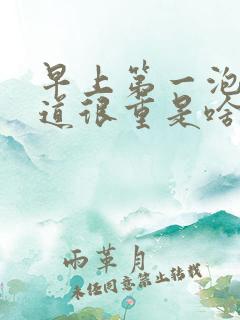 早上第一泡
道很重是啥
雨革月
未经同意禁止转载